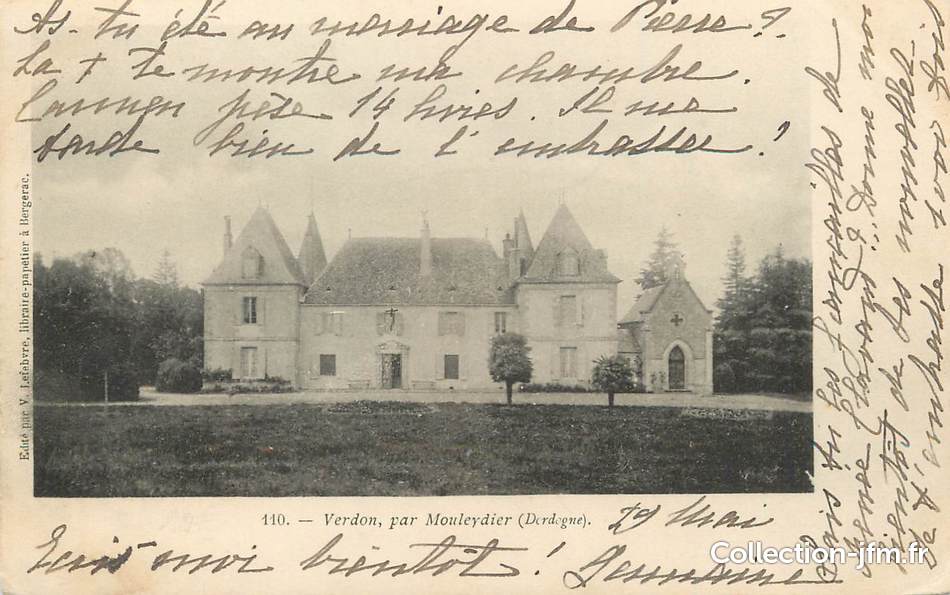 As-tu été au mariage de Pierre ?
La + te montre ma chambre.
pèse 14 livres. Il me
tarde bien de t'embrasser !
Edité par V. Lefebvre, libraire-papetier à Bergerac.
110. — Verdon, par Mouleydier (Dordogne).
29 Mai
Ecris-moi bientôt !
Germaine
Sais tu les fiançailles de
? Donne moi
bientôt de tes nouvelles
Collection-jfm.fr